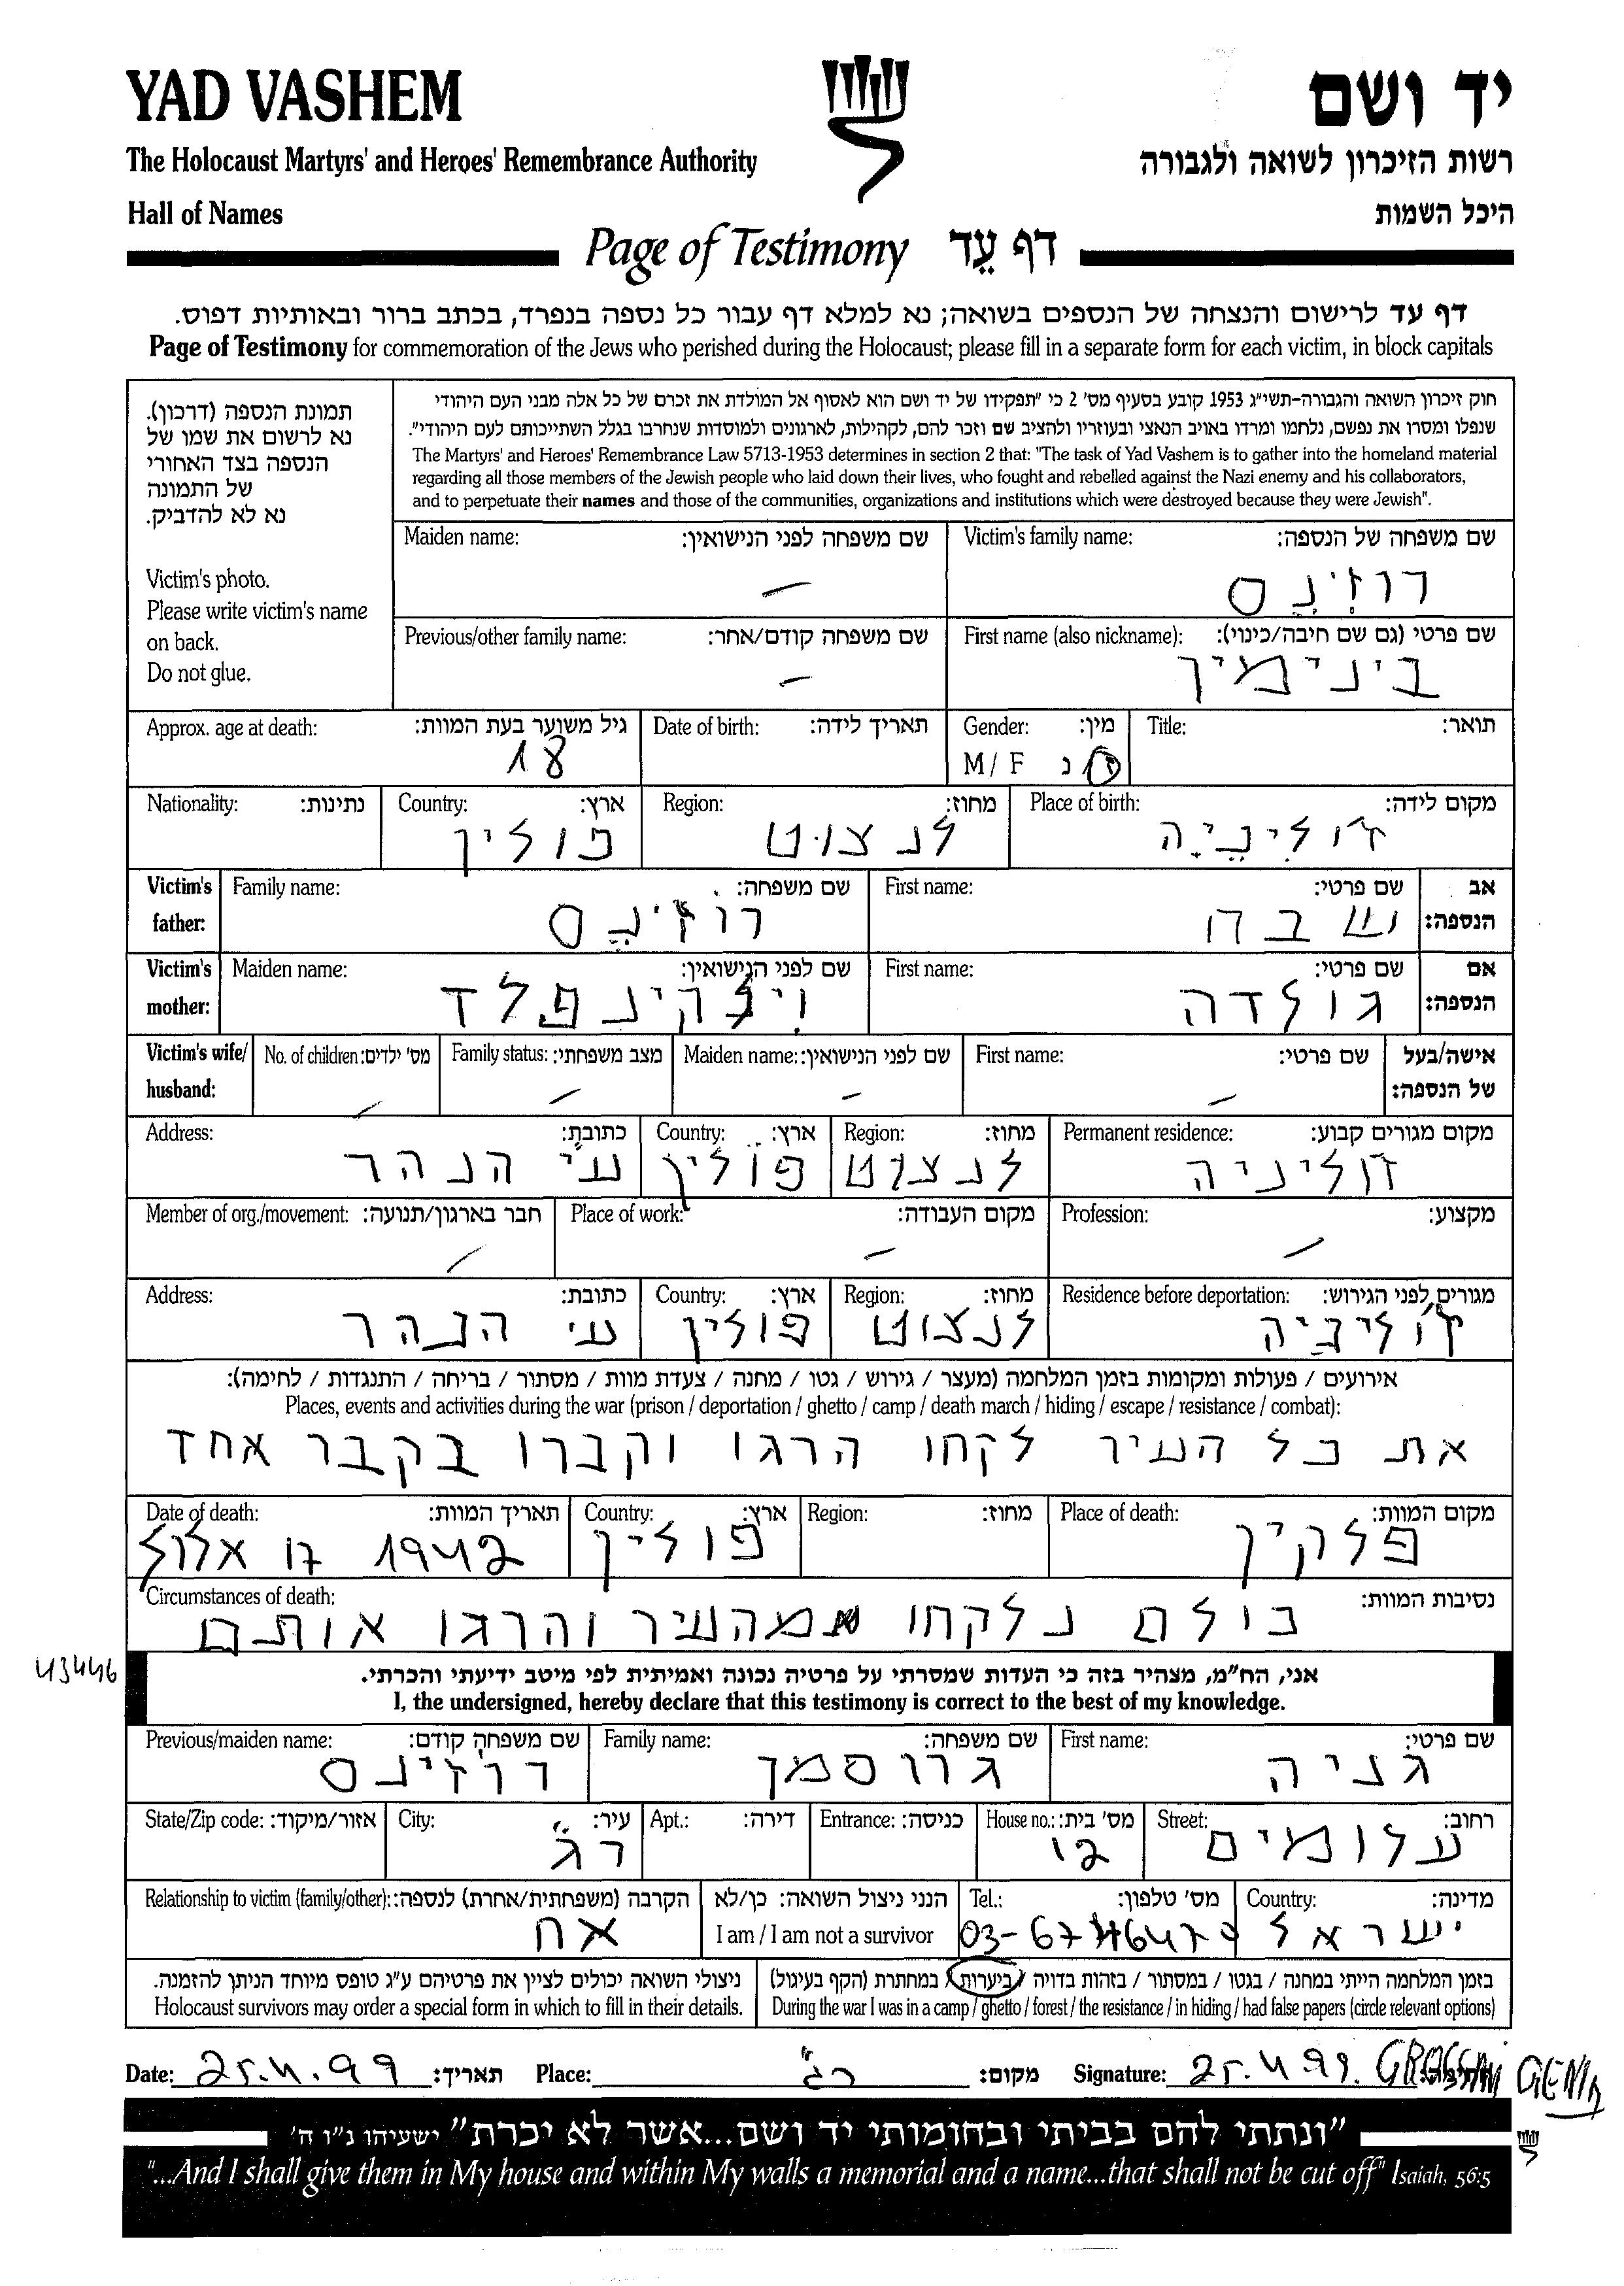 YAD VASHEM
יד ושם
The Holocaust Martyrs' and Heroes' Remembrance Authority
רשות הזיכרון לשואה ולגבורה
Hall of Names
היכל השמות
Page of Testimony דף עֵד
דף עד לרישום והנצחה של הנספים בשואה; נא למלא דף עבור כל נספה בנפרד, בכתב ברור ובאותיות דפוס.
Page of Testimony for commemoration of the Jews who perished during the Holocaust; please fill in a separate form for each victim, in block capitals
תמונת הנספה (דרכון).
נא לרשום את שמו של
הנספה בצד האחורי
של התמונה
נא לא להדביק.
Victim's photo.
Please write victim's name
on back.
Do not glue.
חוק זיכרון השואה והגבורה-תשי"ג 1953 קובע בסעיף מס' 2 כי "תפקידו של יד ושם הוא לאסוף אל המולדת את זכרם של כל אלה מבני העם היהודי
שנפלו ומסרו את נפשם, נלחמו ומרדו באויב הנאצי ובעוזריו ולהציב שם וזכר להם, לקהילות, לארגונים ולמוסדות שנחרבו בגלל השתייכותם לעם היהודי".
The Martyrs' and Heroes' Remembrance Law 5713-1953 determines in section 2 that: "The task of Yad Vashem is to gather into the homeland material
regarding all those members of the Jewish people who laid down their lives, who fought and rebelled against the Nazi enemy and his collaborators,
and to perpetuate their names and those of the communities, organizations and institutions which were destroyed because they were Jewish".
Victim's family name: שם משפחה של הנספה:
רוזינס
Maiden name: שם משפחה לפני הנישואין:
–
First name (also nickname): שם פרטי (גם שם חיבה/כינוי):
בינימין
Previous/other family name: שם משפחה קודם/אחר:
–
Title: תואר:
Gender: מין:
M / F ז נ
Date of birth: תאריך לידה:
Approx. age at death: גיל משוער בעת המוות:
18
Place of birth: מקום לידה:
ז'וליניה
Region: מחוז:
לנצוט
Country: ארץ:
פולין
Nationality: נתינות:
Victim's father: אב הנספה:
First name: שם פרטי:
שבח
Family name: שם משפחה:
רוזינס
Victim's mother: אם הנספה:
First name: שם פרטי:
גולדה
Maiden name: שם לפני הנישואין:
Victim's wife/ husband: אישה/בעל של הנספה:
First name: שם פרטי:
–
Maiden name: שם לפני הנישואין:
–
Family status: מצב משפחתי:
–
No. of children: מס' ילדים:
–
Permanent residence: מקום מגורים קבוע:
ז'וליניה
Region: מחוז:
לנצוט
Country: ארץ:
פולין
Address: כתובת:
ע"י הנהר
Profession: מקצוע:
–
Place of work: מקום העבודה:
–
Member of org./movement: חבר בארגון/תנועה:
–
Residence before deportation: מגורים לפני הגירוש:
ז'וליניה
Region: מחוז:
לנצוט
Country: ארץ:
פולין
Address: כתובת:
ע"י הנהר
אירועים / פעולות ומקומות בזמן המלחמה (מעצר / גירוש / גטו / מחנה / צעדת מוות / מסתור / בריחה / התנגדות / לחימה):
Places, events and activities during the war (prison / deportation / ghetto / camp / death march / hiding / escape / resistance / combat):
את כל העיר לקחו הרגו וקברו בקבר אחד
Place of death: מקום המוות:
פלקין
Region: מחוז:
Country: ארץ:
פולין
Date of death: תאריך המוות:
1942 17 אלול
Circumstances of death: נסיבות המוות:
כולם נלקחו מהעיר והרגו אותם
43446
אני, הח"מ, מצהיר בזה כי העדות שמסרתי על פרטיה נכונה ואמיתית לפי מיטב ידיעתי והכרתי.
I, the undersigned, hereby declare that this testimony is correct to the best of my knowledge.
First name: שם פרטי:
גניה
Family name: שם משפחה:
גרוסמן
Previous/maiden name: שם משפחה קודם:
רוזינס
Street: רחוב:
עלומים
House no.: מס' בית:
12
Entrance: כניסה:
Apt.: דירה:
City: עיר:
ר"ג
State/Zip code: אזור/מיקוד:
Country: מדינה:
ישראל
Tel.: מס' טלפון:
הנני ניצול השואה: כן/לא
I am / I am not a survivor
Relationship to victim (family/other): הקרבה (משפחתית/אחרת) לנספה:
אח
בזמן המלחמה הייתי במחנה / בגטו / במסתור / בזהות בדויה / ביערות / במחתרת (הקף בעיגול)
During the war I was in a camp / ghetto / forest / the resistance / in hiding / had false papers (circle relevant options)
ניצולי השואה יכולים לציין את פרטיהם ע"ג טופס מיוחד הניתן להזמנה.
Holocaust survivors may order a special form in which to fill in their details.
Date: 25.4.99 תאריך: Place: ר"ג מקום: Signature: 25.4.99. GENIA
"ונתתי להם בביתי ובחומותי יד ושם...אשר לא יכרת" ישעיהו נ"ו ה'
"...And I shall give them in My house and within My walls a memorial and a name...that shall not be cut off" Isaiah, 56:5